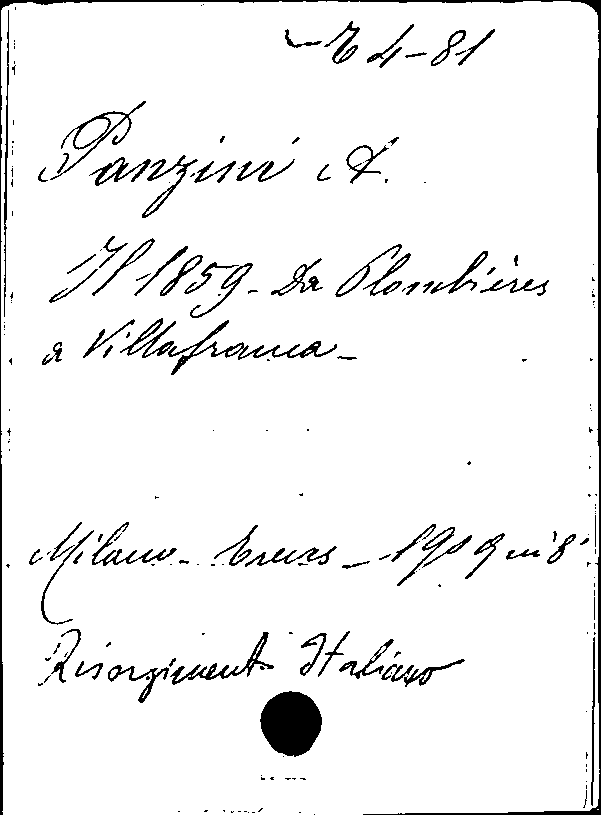 E 4-81
Panzini A.
Il 1859 - Da Plombières
a Villafranca -
Milano - Treves - 1909 in 8°
Risorgimento Italiano